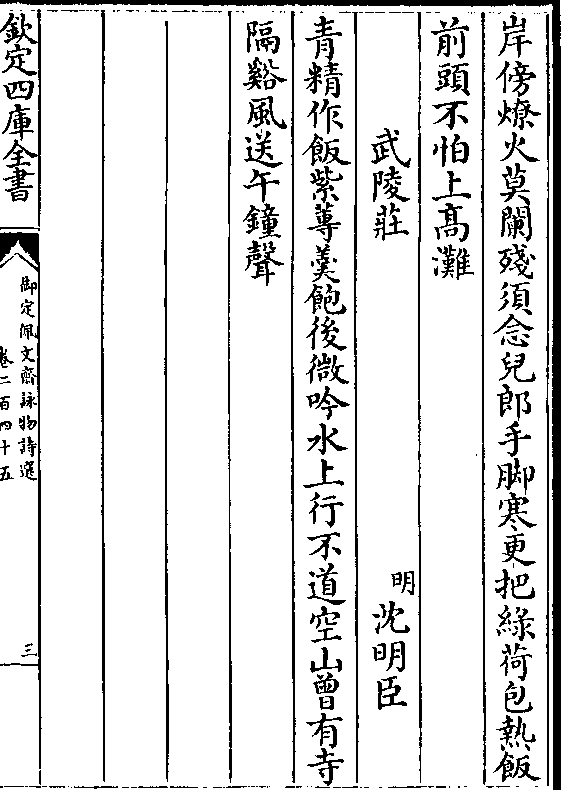 岸傍燎火莫闌殘須念兒郎手脚寒更把綠荷包熱飯
前頭不怕上髙灘
武陵莊
明沈明臣
青精作飯紫蓴羮飽後微吟水上行不道空山曾有寺
隔谿風送午鐘聲
欽定四庫全書
御定佩文齋詠物詩選
卷二百四十五
三